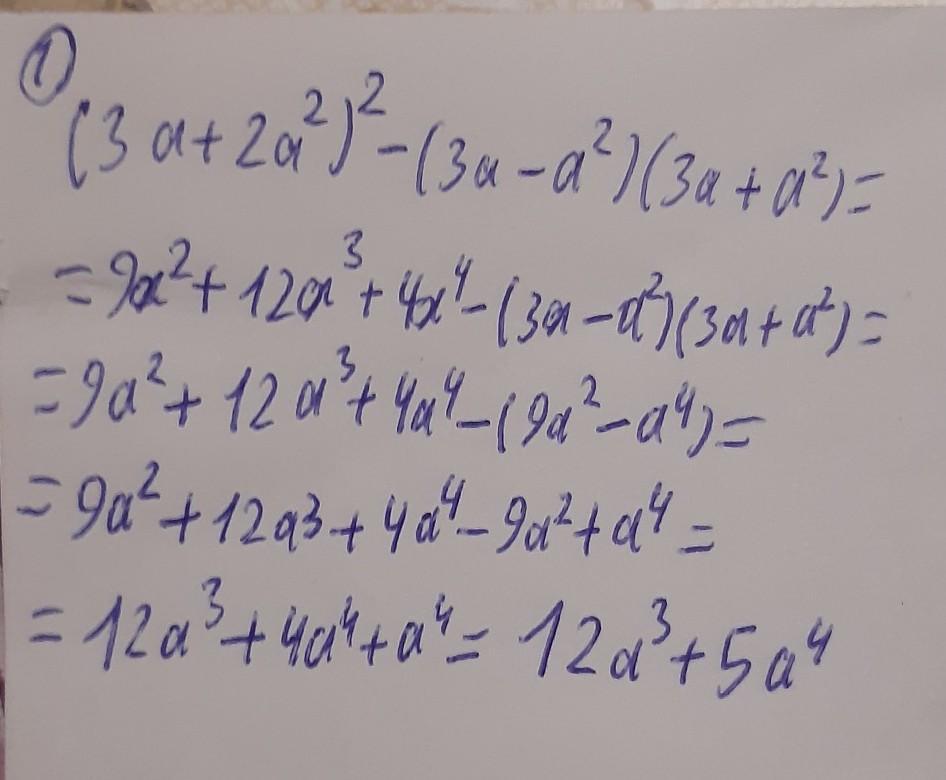 ①
(3a+2a²)²-(3a-a²)(3a+a²)=
=9a²+12a³+4a⁴-(3a-a²)(3a+a²)=
=9a²+12a³+4a⁴-(9a²-a⁴)=
=9a²+12a3+4a⁴-9a²+a⁴=
=12a³+4a⁴+a⁴=12a³+5a⁴